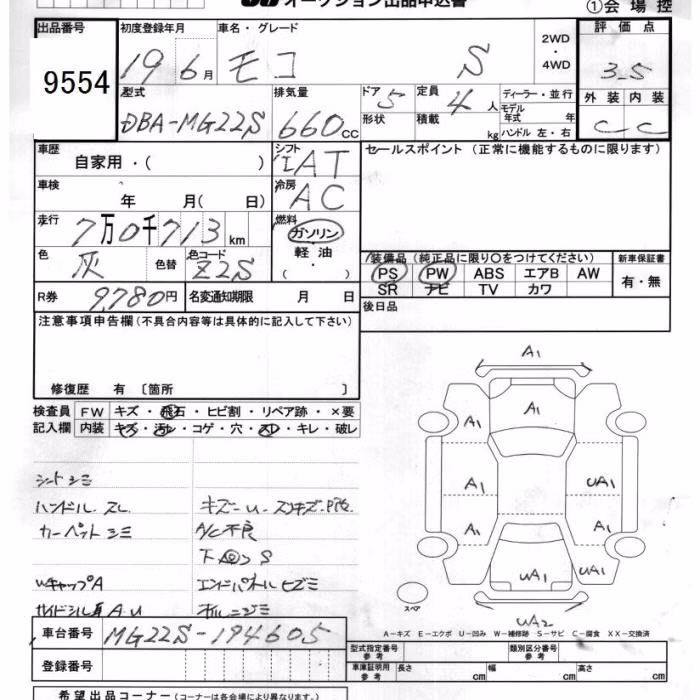 オークション出品申込書
①会場控
出品番号
9554
初度登録年月
19 6月
車名・グレード
モコ S
2WD
・
4WD
評価点
3.5
外装 内装
C C
型式
DBA-MG22S
排気量
660cc
ドア 5
形状
定員 4人
積載 kg
ディーラー・並行
モデル年式 年
ハンドル 左・右
車歴
自家用・( )
シフト
IAT
車検
年 月( 日)
冷房
AC
走行
7万0千713km
燃料
ガソリン
軽油
( ・ )
色
灰
色替
色コード
Z2S
R券 9,780円
名変通知期限 月 日
セールスポイント (正常に機能するものに限ります)
装備品(純正品に限り○をつけてください)
新車保証書
PS PW ABS エアB AW
SR ナビ TV カワ
有・無
後日品
注意事項申告欄(不具合内容等は具体的に記入して下さい)
修復歴 有 〔箇所 〕
検査員記入欄
FW キズ・飛石・ヒビ割・リペア跡・×要
内装 キズ・汚レ・コゲ・穴・スレ・キレ・破レ
シートシミ
ハンドルスレ
カーペットシミ
A/C不良
S
WキャップA
A.U
車台番号 MG22S-194605
登録番号
A1
A1
A1
A1
A1
A1
A1
UA1
UA1
UA1
UA2
スペア
A-キズ E-エクボ U-凹み W-補修跡 S-サビ C-腐食 XX-交換済
型式指定番号 参考
類別区分番号 参考
車庫証明用 参考
長さ cm 幅 cm 高さ cm
希望出品コーナー(コーナーは各会場により異なります。)